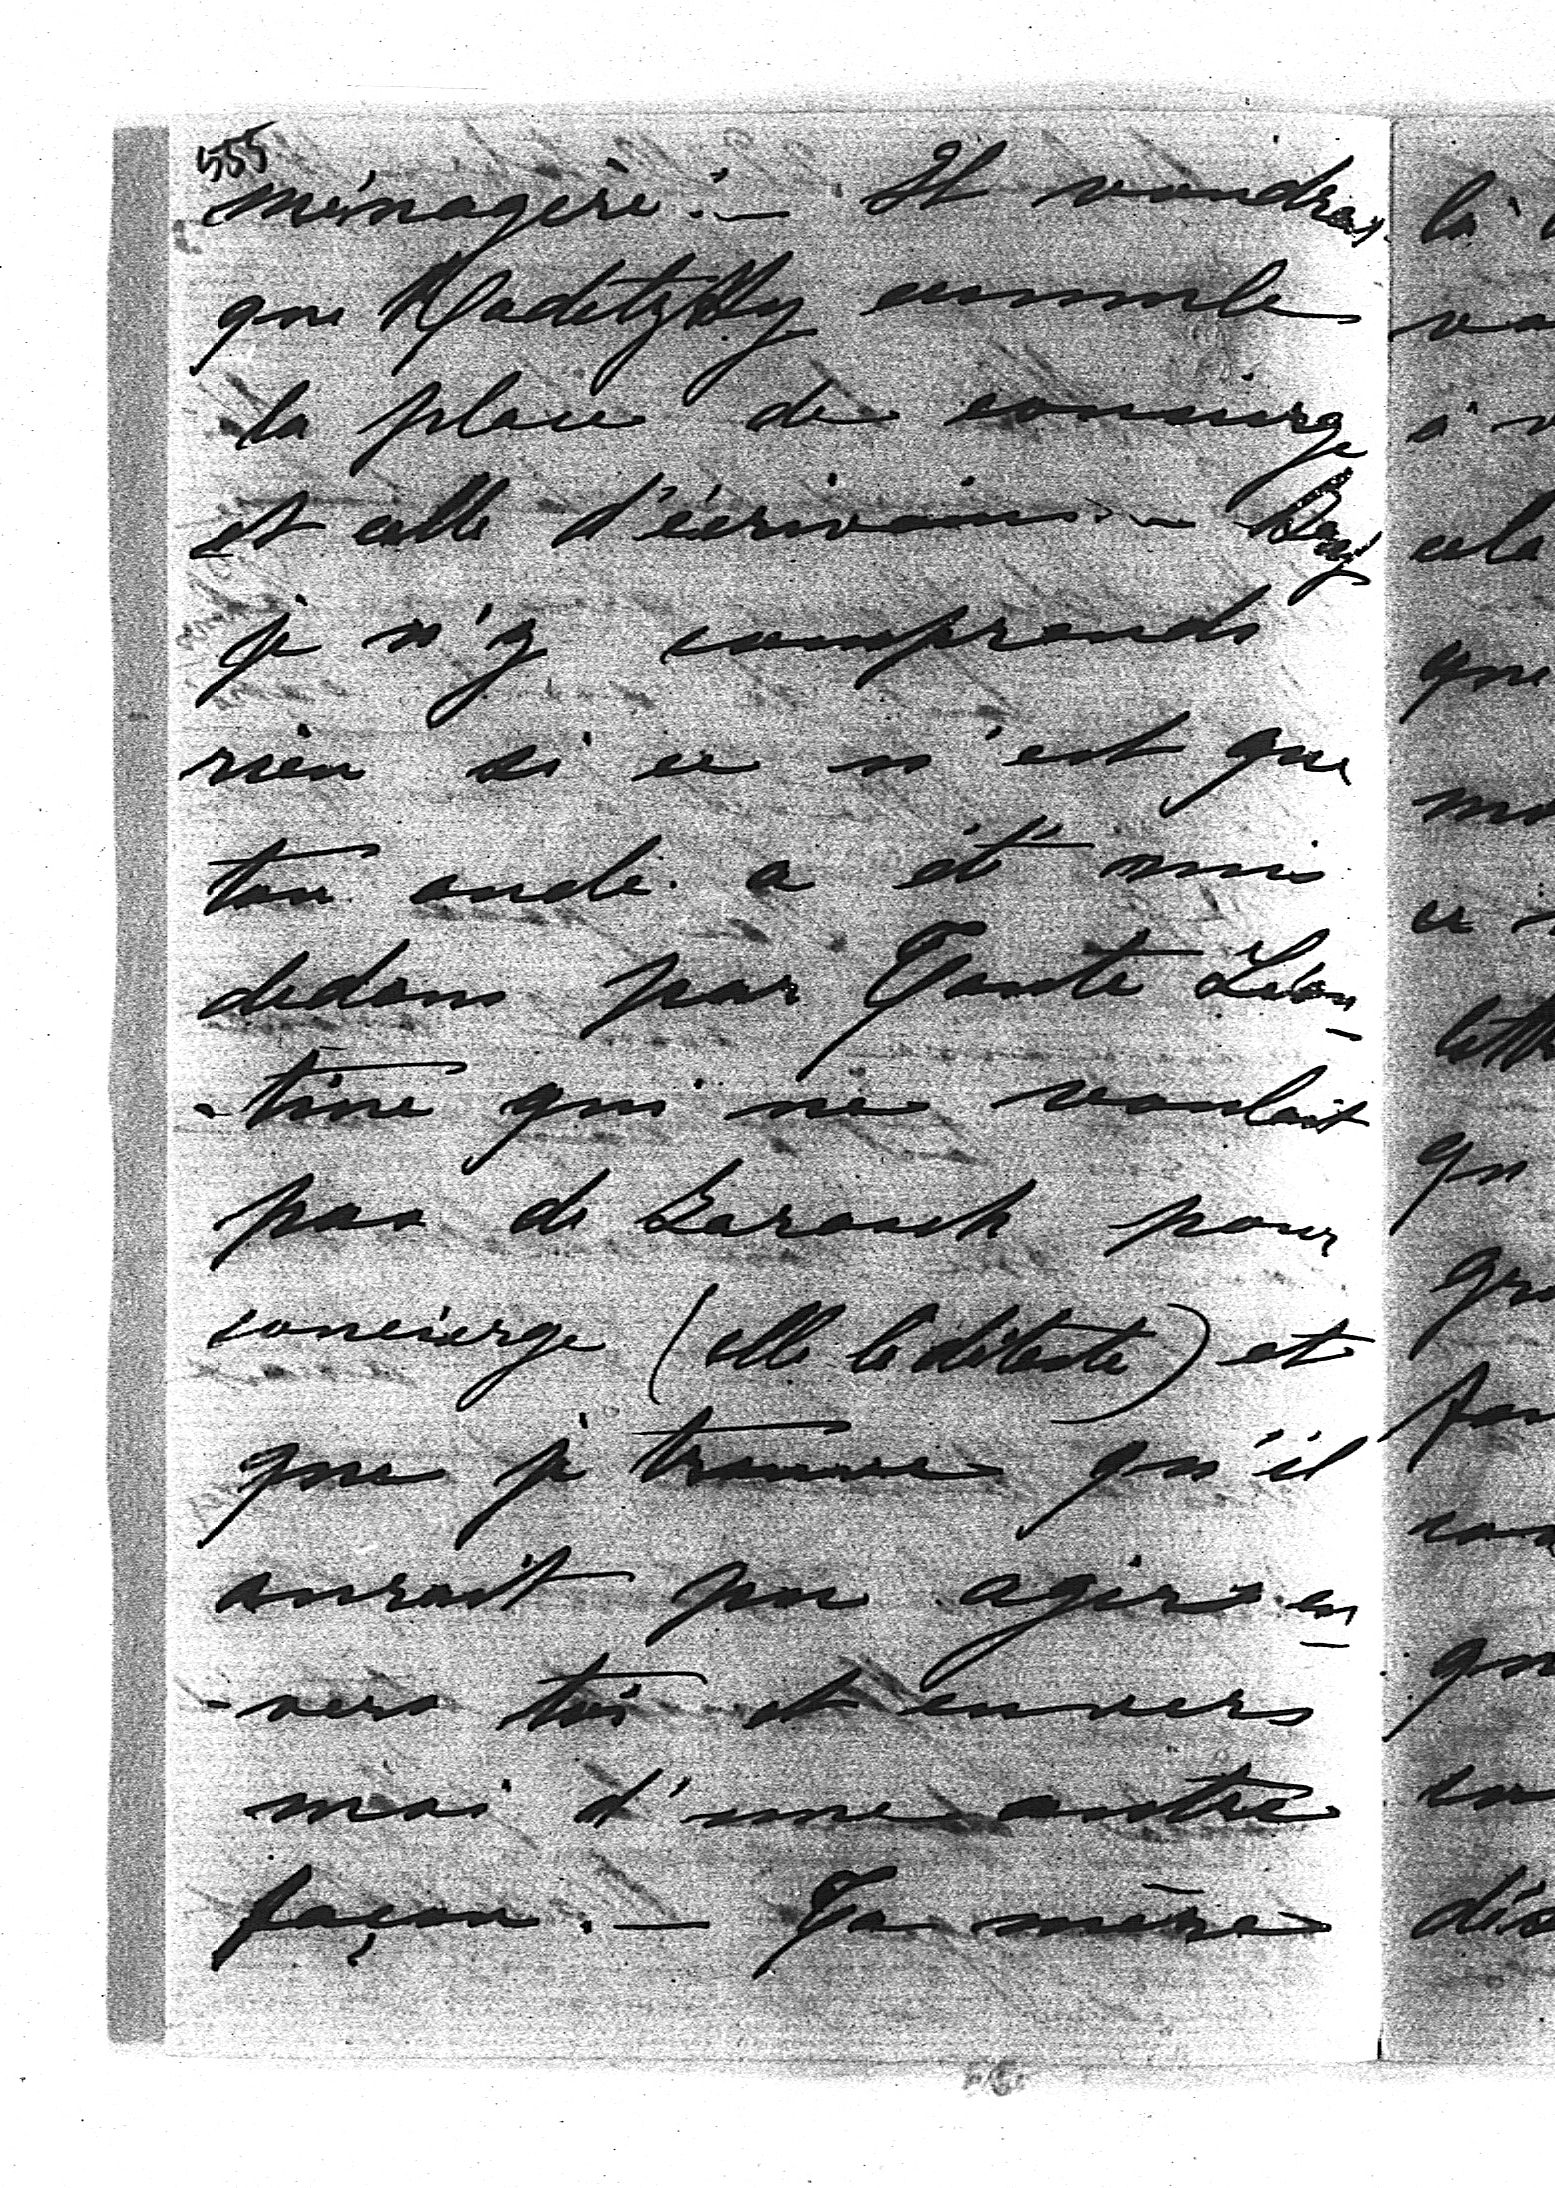 555
ménagère. — Il voudrait
que Radetzky cumule
la place de concierge
et celle d'écrivain. —
je n'y comprends
rien si ce n'est que
ton oncle a été mis
dedans par Tante Léon-
-tine qui ne voulait
pas de Barouch pour
concierge (elle le déteste) et
que je trouve qu'il
aurait pu agir en-
-vers toi et envers
moi d'une autre
façon. — Ta mère